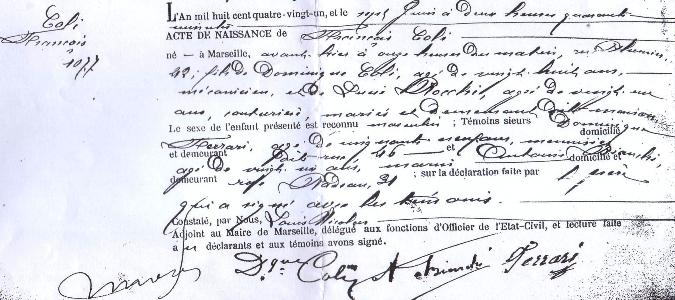 Coli
François
1077
L'An mil huit cent quatre-vingt-un, et le juin à deux heures quarante
minutes
ACTE DE NAISSANCE de François Coli
né — à Marseille, avant-hier à onze heures du matin, rue
42, fils de Dominique Coli, âgé de vingt huit ans,
mécanicien, et de Lucie âgée de vingt un
ans, couturière, mariés et demeurant
Le sexe de l'enfant présenté est reconnu masculin ; Témoins sieurs Dominique
Ferrari, âgé de ans, menuisier domicilié
et demeurant rue, 46 et Antoine Bianchi
âgé de vingt un ans, marin domicilié et
demeurant rue 31 ; sur la déclaration faite par le père
qui a signé avec les témoins.
Constaté, par Nous, Louis Nicolas
Adjoint au Maire de Marseille, délégué aux fonctions d'Officier de l'Etat-Civil, et lecture faite
aux déclarants et aux témoins avons signé.
Dque Coli A Bianchi Ferrari